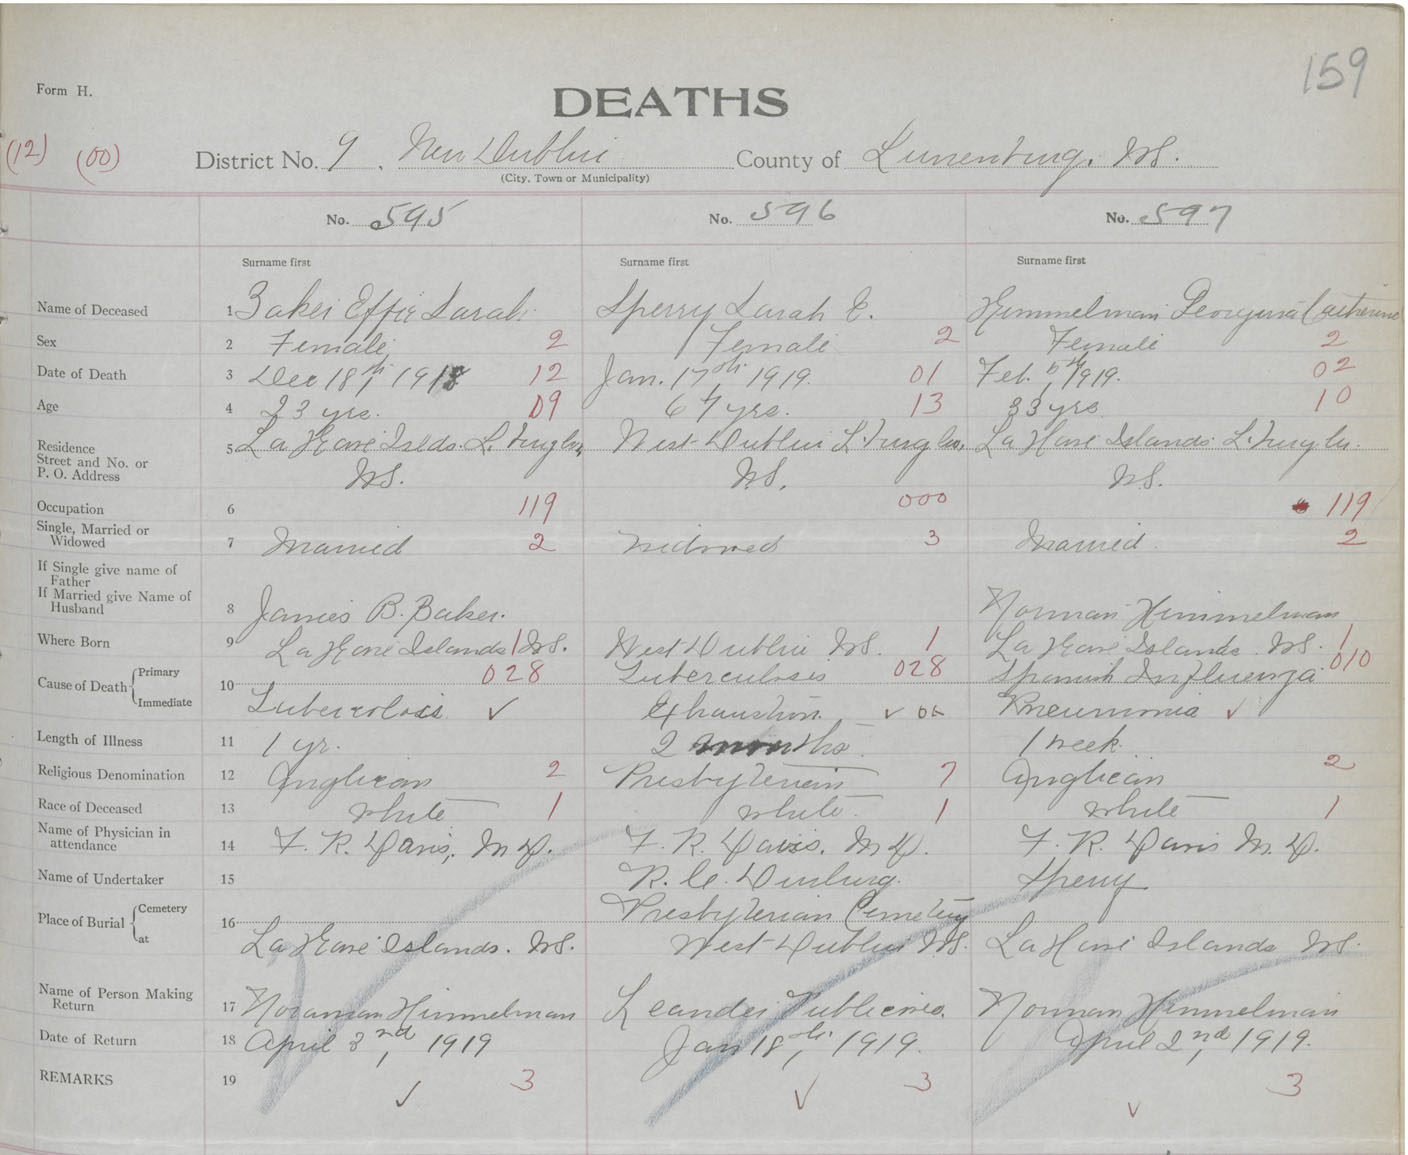 159
Form H.
DEATHS
(12) (00)
District No. 9, New Dublin County of Lunenburg, N.S.
(City, Town or Municipality)
No. 595 No. 596 No. 597
Surname first Surname first Surname first
Name of Deceased 1 Baker Effie Sarah Sperry Sarah E. Himmelman Georgina Catherine
Sex 2 Female 2 Female 2 Female 2
Date of Death 3 Dec 18th, 1918 12 Jan. 17th, 1919. 01 Feb. 5th, 1919. 02
Age 4 23 yrs. 09 67 yrs. 13 33 yrs. 10
Residence
Street and No. or
P. O. Address
5 La Have Islds. L. West Dublin L. La Have Islands. L.
N.S. N.S. N.S.
Occupation 6 119 000 119
Single, Married or
Widowed 7 Married 2 Widowed 3 Married. 2
If Single give name of
Father
If Married give Name of
Husband 8 James B. Baker. Norman Himmelman
Where Born 9 La Have Islands N.S. 1 West Dublin N.S. 1 La Have Islands. N.S. 1
Cause of Death { Primary 028 Tuberculosis 028 Spanish Influenza 010
10
Immediate Tuberculosis ✓ Exhaustion ✓ OK Pneumonia ✓
Length of Illness 11 1 yr. 2 months 1 week.
Religious Denomination 12 Anglican 2 Presbyterian 7 Anglican 2
Race of Deceased 13 White 1 White. 1 White 1
Name of Physician in
attendance 14 F. R. Davis, M.D. F. R. Davis. M.D. F. R. Davis M.D.
Name of Undertaker 15 R. Sperry
Place of Burial { Cemetery Presbyterian Cemetery
16
at La Have Islands. N.S. West Dublin N.S. La Have Islands N.S.
Name of Person Making
Return 17 Norman Himmelman Leander Publicover. Norman Himmelman
Date of Return 18 April 3nd, 1919 Jan 18th, 1919. April 2nd, 1919.
REMARKS 19 3 3 3
✓ ✓ ✓